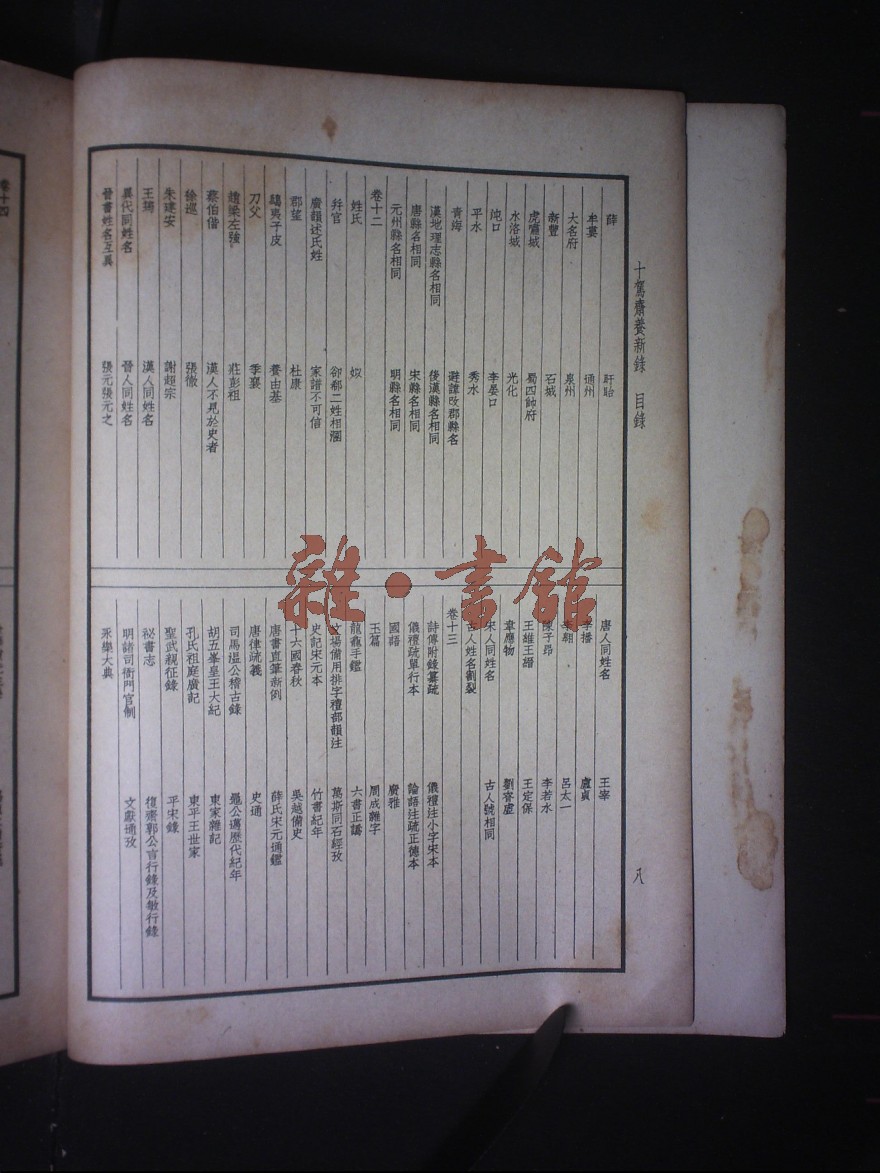 十駕齋養新錄 目錄
八
薛 盱眙
牟婁 通州
大名府 泉州
新豐 石城
虎嘯城 蜀四蝕府
水洛城 光化
沌口 李晏口
平水 秀水
青海 避諱改郡縣名
漢地理志縣名相同 後漢縣名相同
唐縣名相同 宋縣名相同
元州縣名相同 明縣名相同
卷十二
姓氏 奴
幷官 卻郗二姓相溷
廣韻述氏姓 家譜不可信
郡望 杜康
鴟夷子皮 養由基
刀父 季襄
趙梁左強 莊彭祖
蔡伯偕 漢人不見於史者
徐巡 張敞
朱建安 謝超宗
王莽 漢人同姓名
異代同姓名 晉人同姓名
晉書姓名互異 張元張元之
唐人同姓名 王宰
李播 盧貞
李翱 呂太一
陳子昂 李若水
王維王縉 王定保
韋應物 劉睿虛
宋人同姓名 古人號相同
古人姓名割裂
卷十三
詩傳附錄纂疏 儀禮注小字宋本
儀禮疏單行本 論語注疏正德本
國語 廣雅
玉篇 周成雜字
龍龕手鑑 六書正譌
文場備用排字禮部韻注 萬斯同石經攷
史記宋元本 竹書紀年
十六國春秋 吳越備史
唐書直筆新例 薛氏宋元通鑑
唐律疏義 史通
司馬溫公稽古錄 鼂公邁歷代紀年
胡五峯皇王大紀 東家雜記
孔氏祖庭廣記 東平王世家
聖武親征錄 平宋錄
祕書志 復齋郭公言行錄及敏行錄
明諸司衙門官制 文獻通攷
永樂大典
卷十四
雜·書館